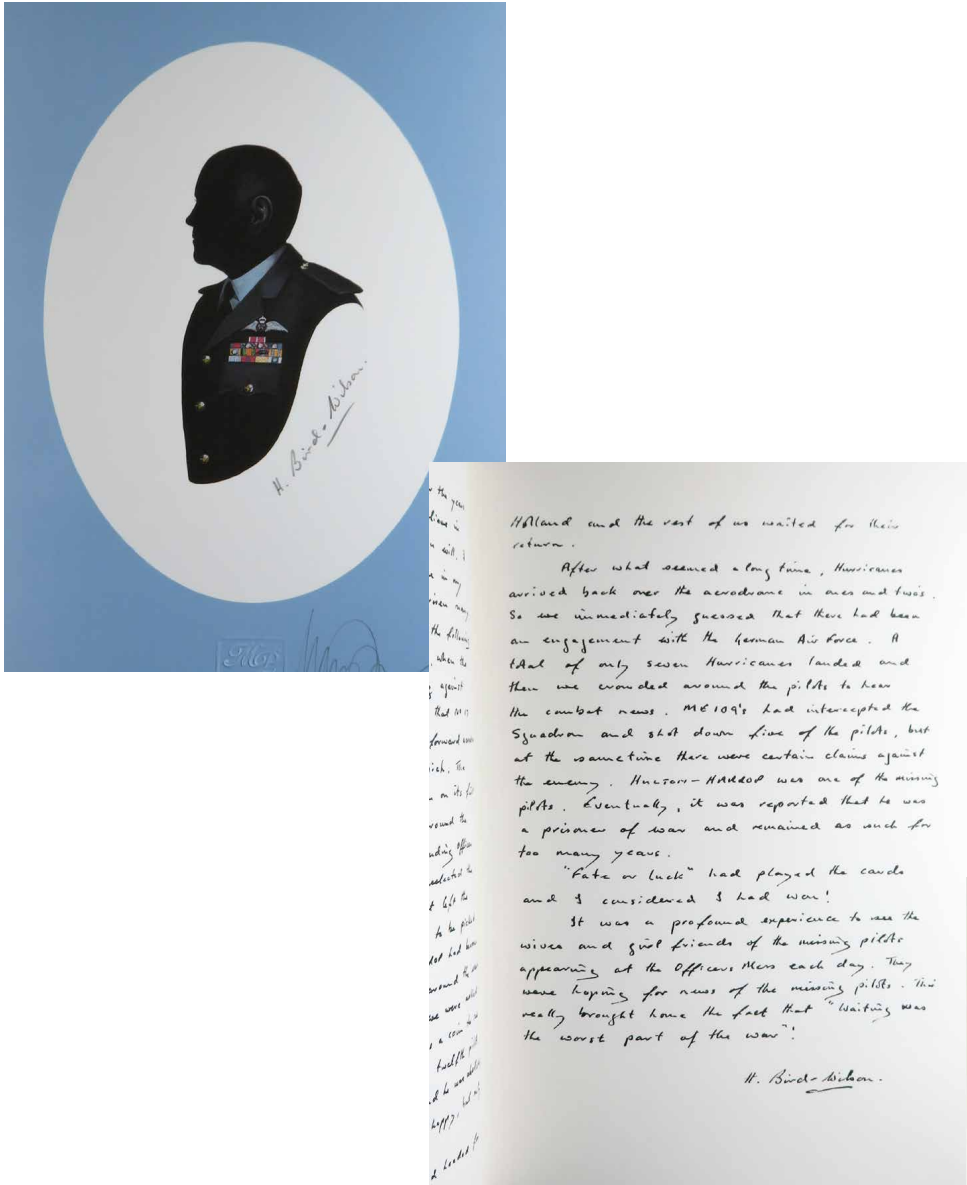 H. Bird-Wilson.
Holland and the rest of us waited for their
return.
After what seemed a long time, Hurricanes
arrived back over the aerodrome in ones and two's.
So we immediately guessed that there had been
an engagement with the German Air Force. A
total of only seven Hurricanes landed and
then we crowded around the pilots to hear
the combat news. ME109's had intercepted the
Squadron and shot down five of the pilots, but
at the same time there were certain claims against
the enemy. HULTON-HARROP was one of the missing
pilots. Eventually, it was reported that he was
a prisoner of war and remained as such for
too many years.
"Fate or luck" had played the cards
and I considered I had won!
It was a profound experience to see the
wives and girl friends of the missing pilots
appearing at the Officers Mess each day. They
were hoping for news of the missing pilots. This
really brought home the fact that "Waiting was
the worst part of the war"!
H. Bird-Wilson.
the year
in
will. I
in my
many
the following
when the
against
that
forward
The
on its
round the
Officer
selected the
left the
to be
had been
around the
we were
a coin to
twelfth
he was
happy, but